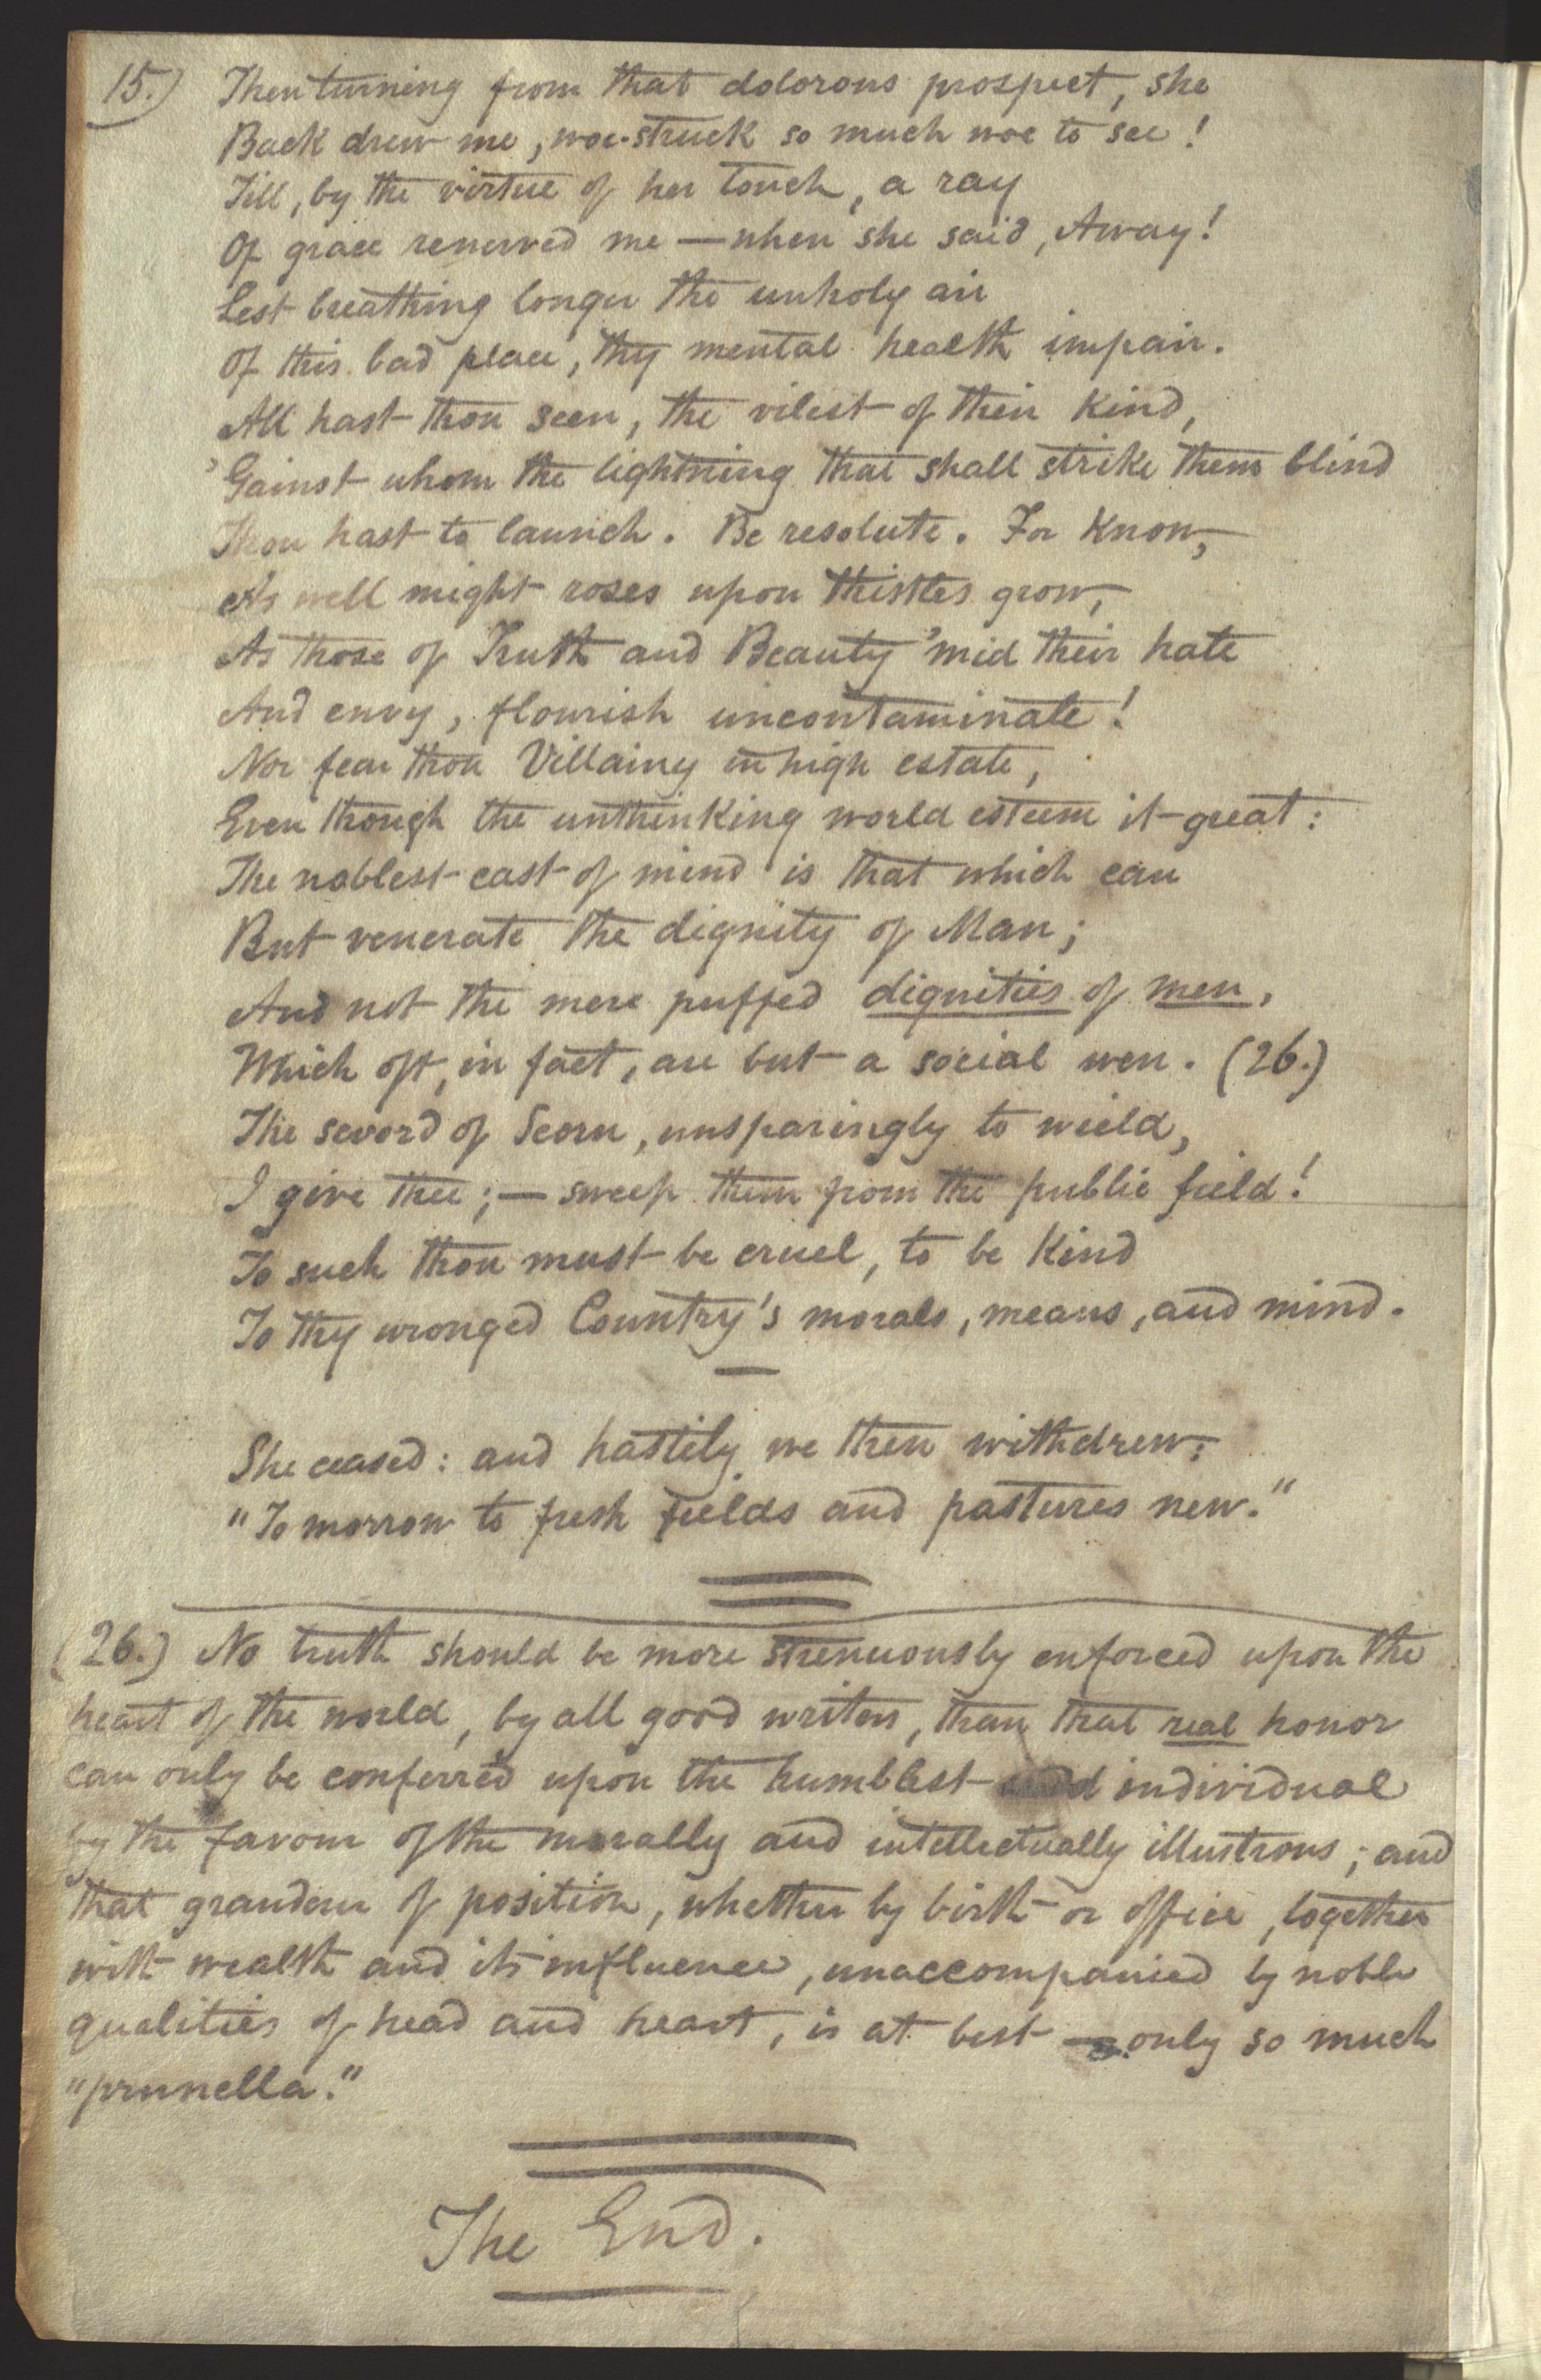 15.) Then turning from that dolorous prospect, she
Back drew me, woe-struck so much woe to see!
Till, by the virtue of her touch, a ray
Of grace renerved me — when she said, Away!
Lest breathing longer the unholy air
Of this bad place, thy mental health impair.
All hast thou seen, the vilest of their kind,
'Gainst whom the lightning that shall strike them blind
Thou hast to launch. Be resolute. For know,
As well might roses upon thistles grow,
As those of Truth and Beauty 'mid their hate
And envy, flourish uncontaminate!
Nor fear thou Villainy in high estate,
Even though the unthinking world esteem it great:
The noblest cast of mind is that which can
But venerate the dignity of Man;
And not the mere puffed dignities of men,
Which oft, in fact, are but a social wen. (26.)
The sword of Scorn, unsparingly to wield,
I give thee; — sweep them from the public field!
To such thou must be cruel, to be kind
To thy wronged Country's morals, means, and mind.
She ceased: and hastily we then withdrew:
"To morrow to fresh fields and pastures new."
(26.) No truth should be more strenuously enforced upon the
heart of the world, by all good writers, than that real honor
can only be conferred upon the humblest individual
by the favour of the morally and intellectually illustrous; and
that grandeur of position, whether by birth or office, together
with wealth and its influence, unaccompanied by noble
qualities of head and heart, is at best — only so much
"prunella."
The End.